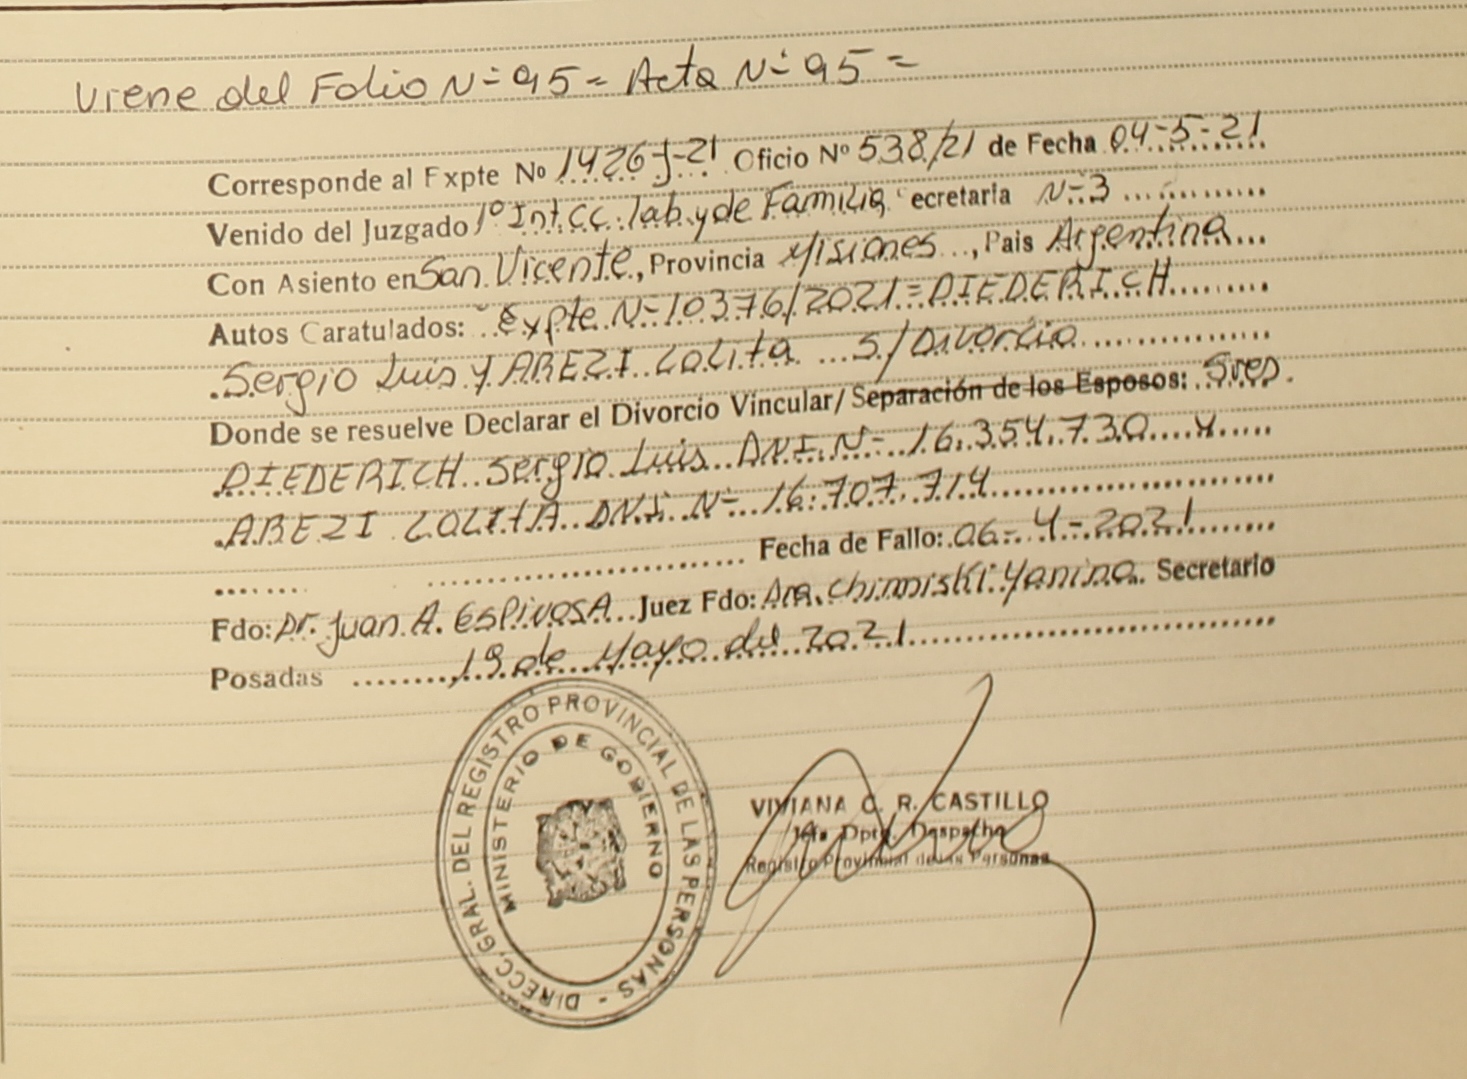 Viene del Folio N=95= Acta N=95=
Corresponde al Expte No 1426-J-21 Oficio Nº 538/21 de Fecha 04-5-21
Venido del Juzgado 1º Int.CC. lab. y de Familia Secretaria N=3
Con Asiento en San Vicente, Provincia Misiones, Pais Argentina
Autos Caratulados: "Expte N=10376/2021=DIEDERICH
Sergio Luis y AREZI LOLITA S/Divorcio
Donde se resuelve Declarar el Divorcio Vincular/ Separación de los Esposos: Sres.
DIEDERICH Sergio Luis DNI N= 16.354.730 y
AREZI LOLITA DNI N= 16.707.714
Fecha de Fallo: 06-4-2021
Fdo: Dr. Juan A. ESPINOSA Juez Fdo: Dra. Chimiski Yanina Secretario
Posadas 19 de Mayo del 2021
DIRECC. GRAL. DEL REGISTRO PROVINCIAL DE LAS PERSONAS -
MINISTERIO DE GOBIERNO
VIVIANA C. R. CASTILLO
Jefa Dpto. Despacho
Registro Provincial de las Personas